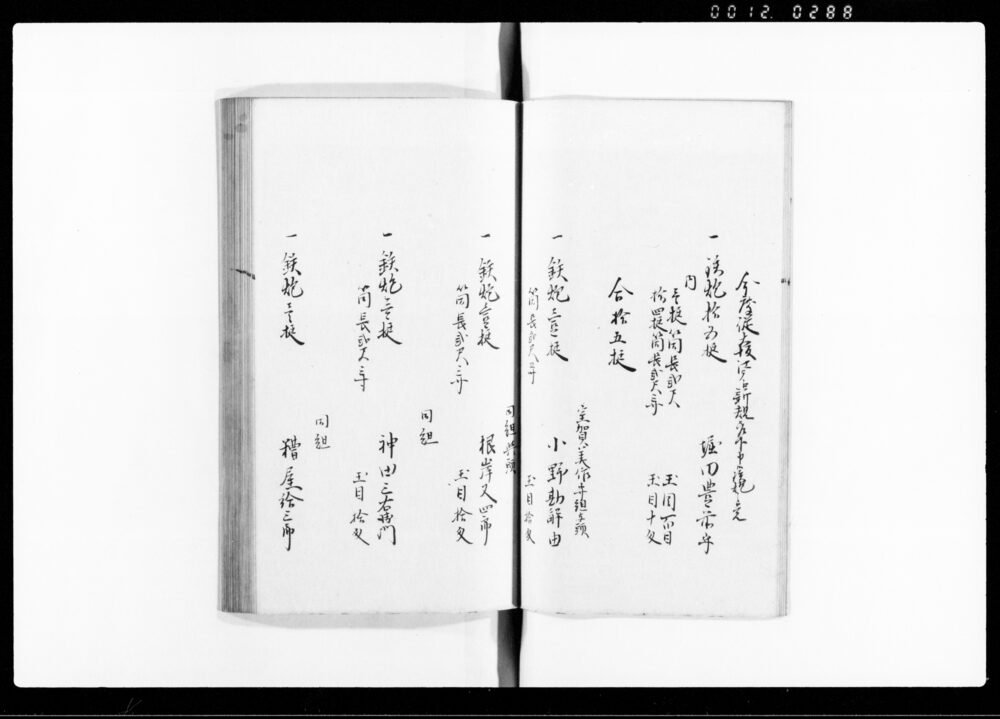 0012 0288
一 鉄炮拾五挺 堀田豊前守
内
壱挺筒長弐尺 玉目百目
拾四挺筒長弐尺三寸 玉目十匁
合拾五挺
室賀美作守組与頭
一 鉄炮壱挺 小野勘解由
筒長弐尺三寸 玉目拾匁
同組与頭
一 鉄炮壱挺 根岸又四郎
筒長弐尺三寸 玉目拾匁
同組
一 鉄炮壱挺 神田三右衛門
筒長弐尺三寸 玉目拾匁
同組
一 鉄炮壱挺 糟屋三郎